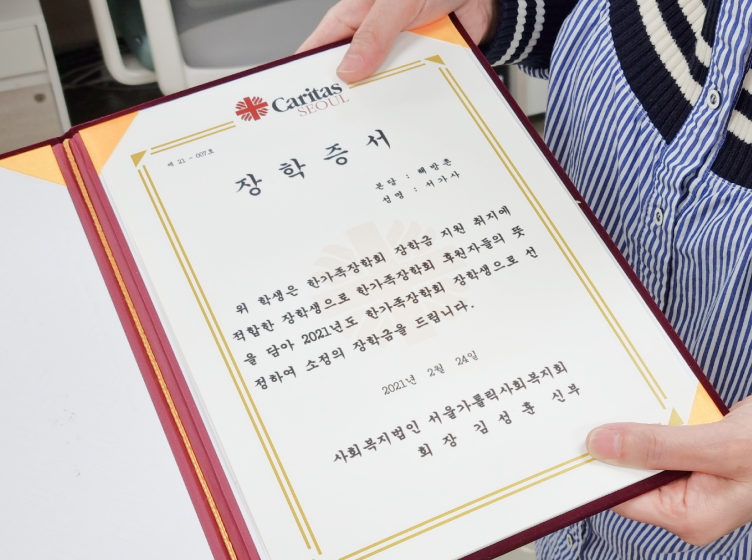 Caritas
SEOUL
제 21 - 007호
장 학 증 서
본당 : 해방촌
성명 : 서가사
위 학생은 한가족장학회 장학금 지원 취지에
적합한 장학생으로 한가족장학회 후원자들의 뜻
을 담아 2021년도 한가족장학회 장학생으로 선
정하여 소정의 장학금을 드립니다.
2021년 2월 24일
사회복지법인 서울가톨릭사회복지회
회 장 김 성 훈 신 부